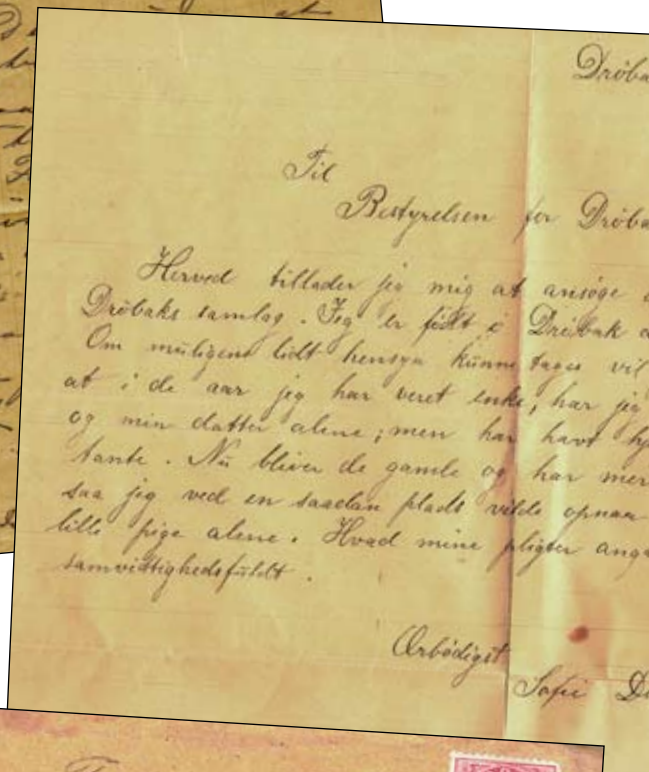 Dröba
Til
Bestyrelsen for Dröba
Herved tillader jeg mig at ansöge
Dröbaks samlag. Jeg er födt i Dröbak
Om muligens lidt hensyn kunne tages vil
at i de aar jeg har veret enke, har jeg
og min datter alene; men har havt hj
tante. Nu bliver de gamle og har mer
saa jeg ved en saadan plads vilde opnaa
lille pige alene. Hvad mine pligter anga
samvittighedsfuldt.
Ærbödigst
Sofie